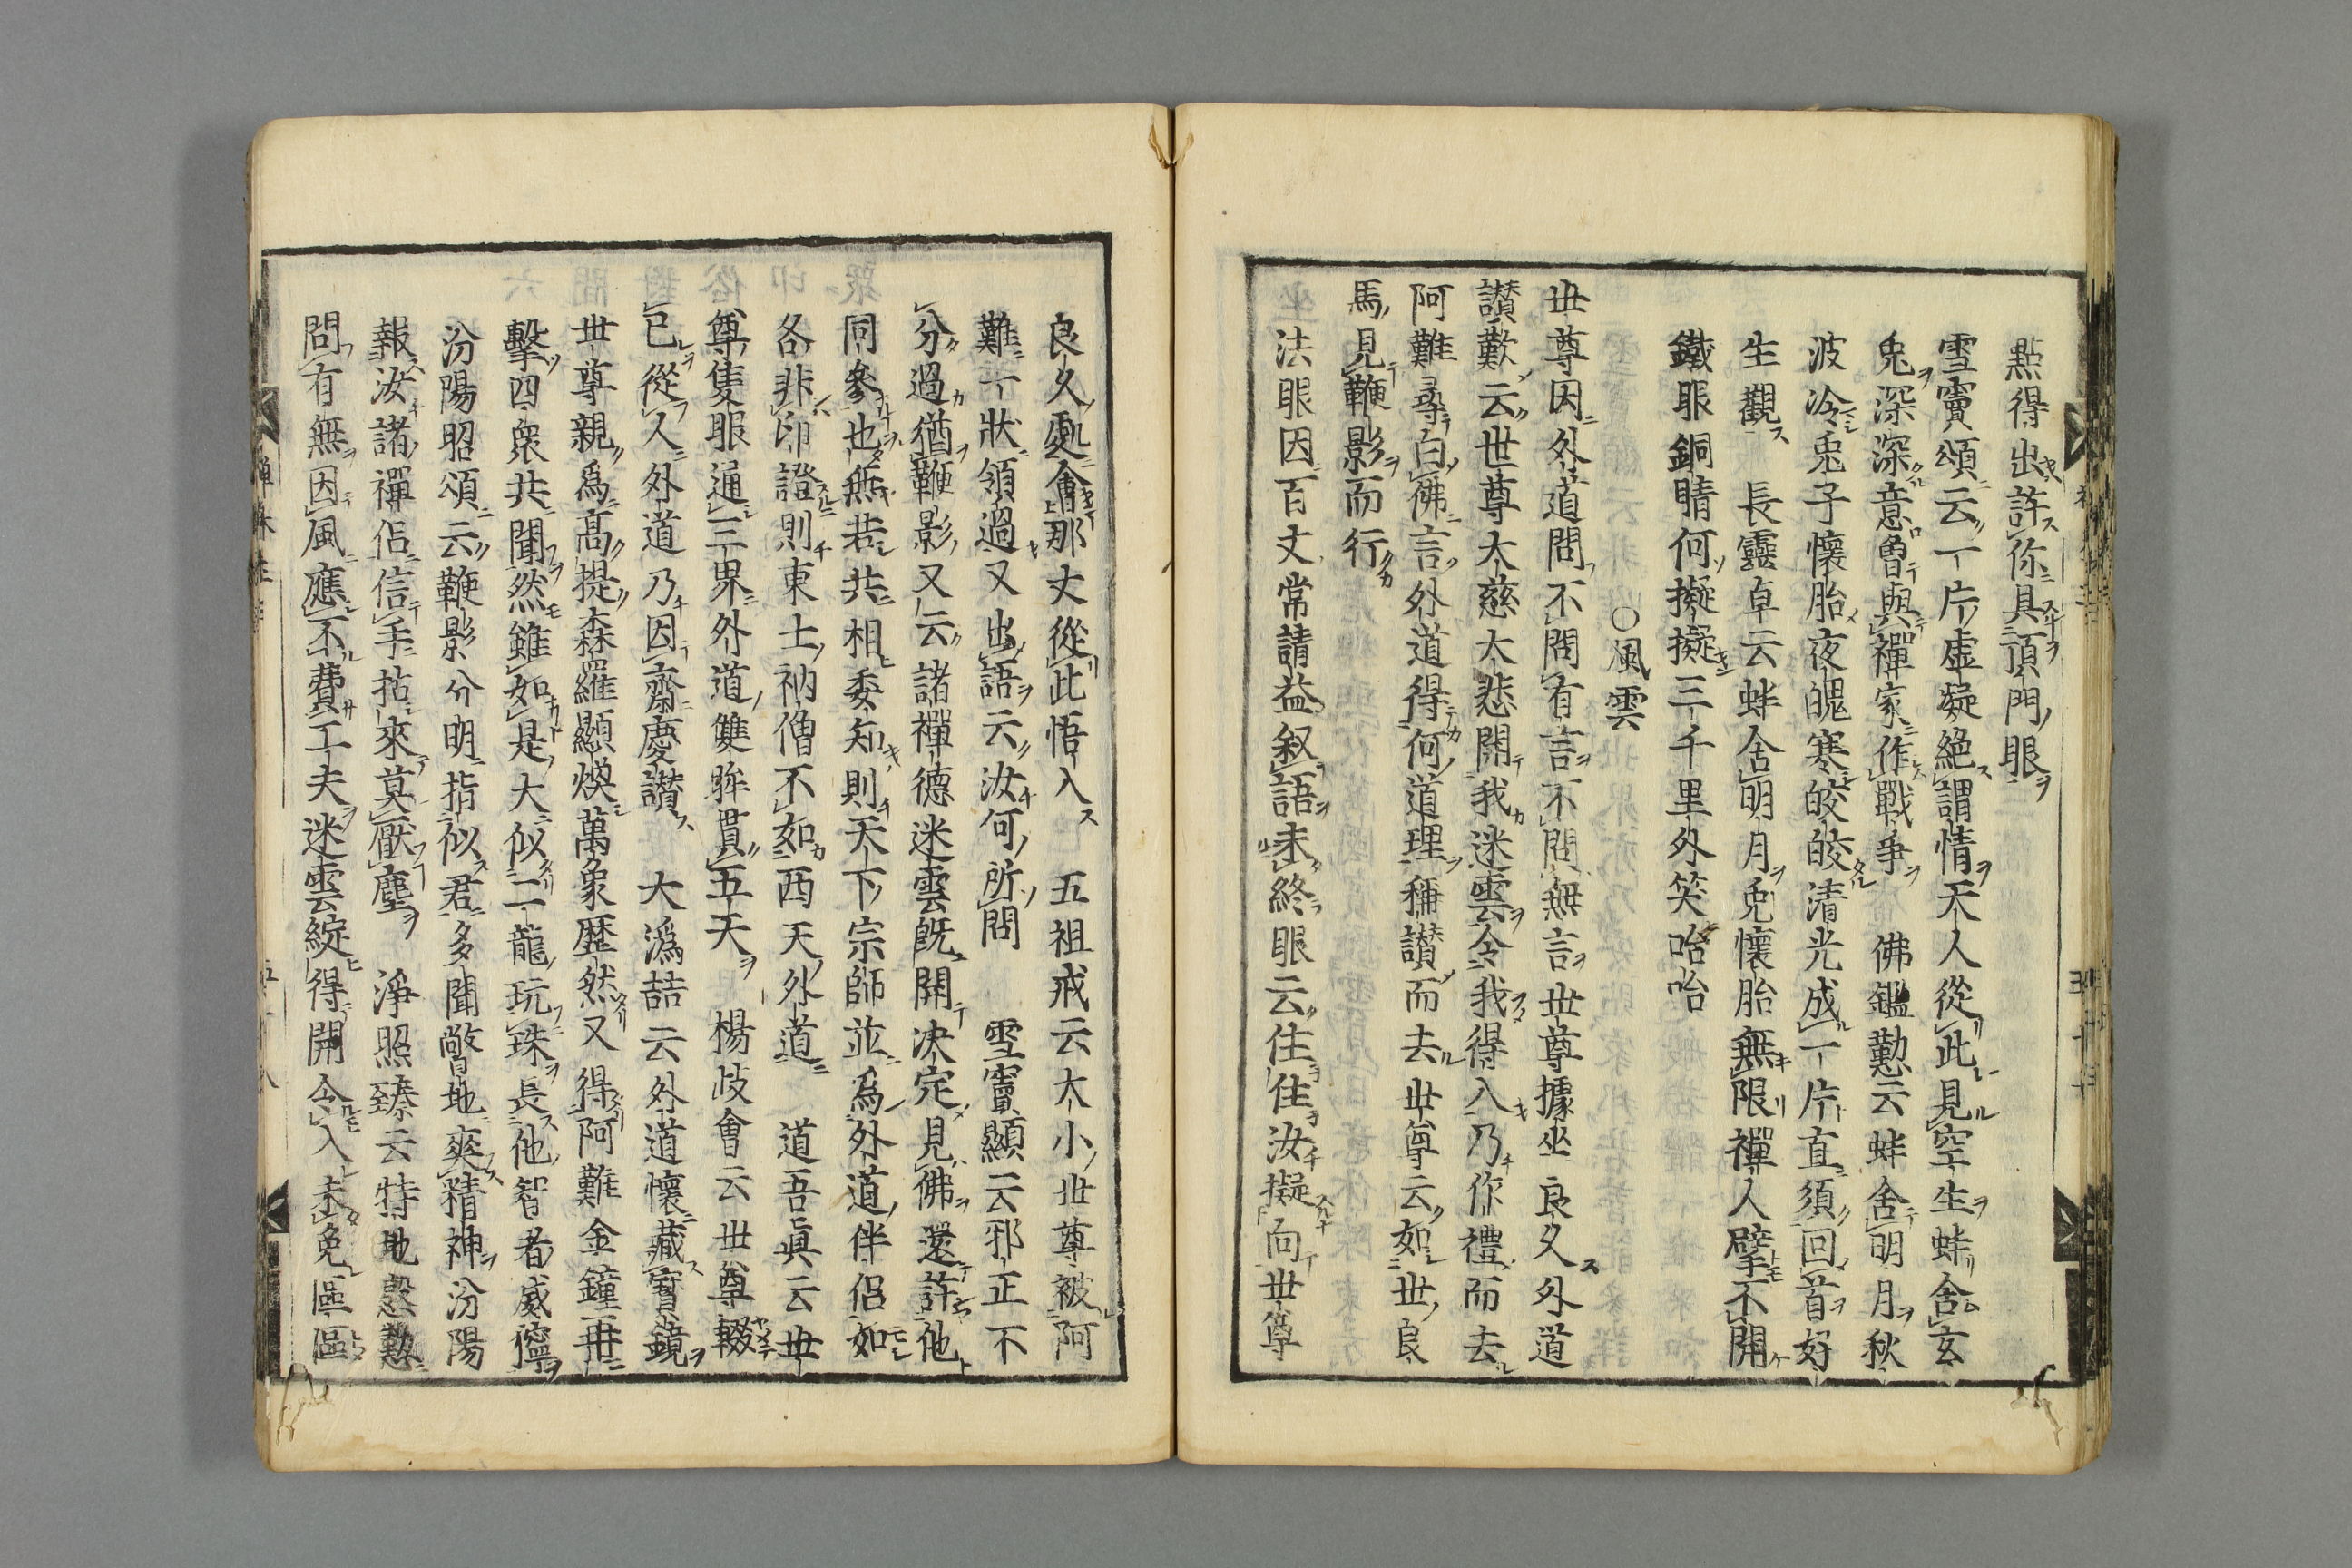 點得出許你具頂門眼
雪竇頌云一片虛凝絶謂情天人從此見空生蚌含玄
兎深深意曽與禪家作戰爭 佛鑑懃云蚌含明月秋
波冷兎子懷胎夜魄寒皎皎清光成一片直須回首好
生觀 長靈卓云蚌含明月兎懷胎無限禪人擘不開
鐵眼銅睛何擬擬三千里外笑咍咍
○風雲
世尊因外道問不問有言不問無言世尊據坐良久外道
讃歎云世尊大慈大悲開我迷雲令我得入乃作禮而去
阿難尋白佛言外道得何道理稱讃而去世尊云如世良
馬見鞭影而行
法眼因百丈常請益叙語未終眼云住住汝擬向世尊
良久處會那丈從此悟入 五祖戒云大小世尊被阿
難一狀領過又出語云汝何所問 雪竇顯云邪正不
分過猶鞭影又云諸禪德迷雲既開决定見佛還許他
同參也無若共相委知則天下宗師並為外道伴侶如
各非印證則東土衲僧不如西天外道 道吾眞云世
尊隻眼通三界外道雙眸貫五天 楊岐會云世尊輟
已從人外道乃因齋慶讃 大潙喆云外道懷藏寶鏡
世尊親爲高提森羅顯煥萬象歷然又得阿難金鐘再
擊四衆共聞然雖如是大似二龍玩珠長他智者威獰
汾陽昭頌云鞭影分明指似君多聞瞥地爽精神汾陽
報汝諸禪侶信手拈來莫厭塵 淨照臻云特地慇懃
問有無因風應不費工夫迷雲綻得開令入未免區區